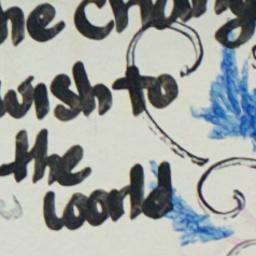 he chang
wish to
the
world